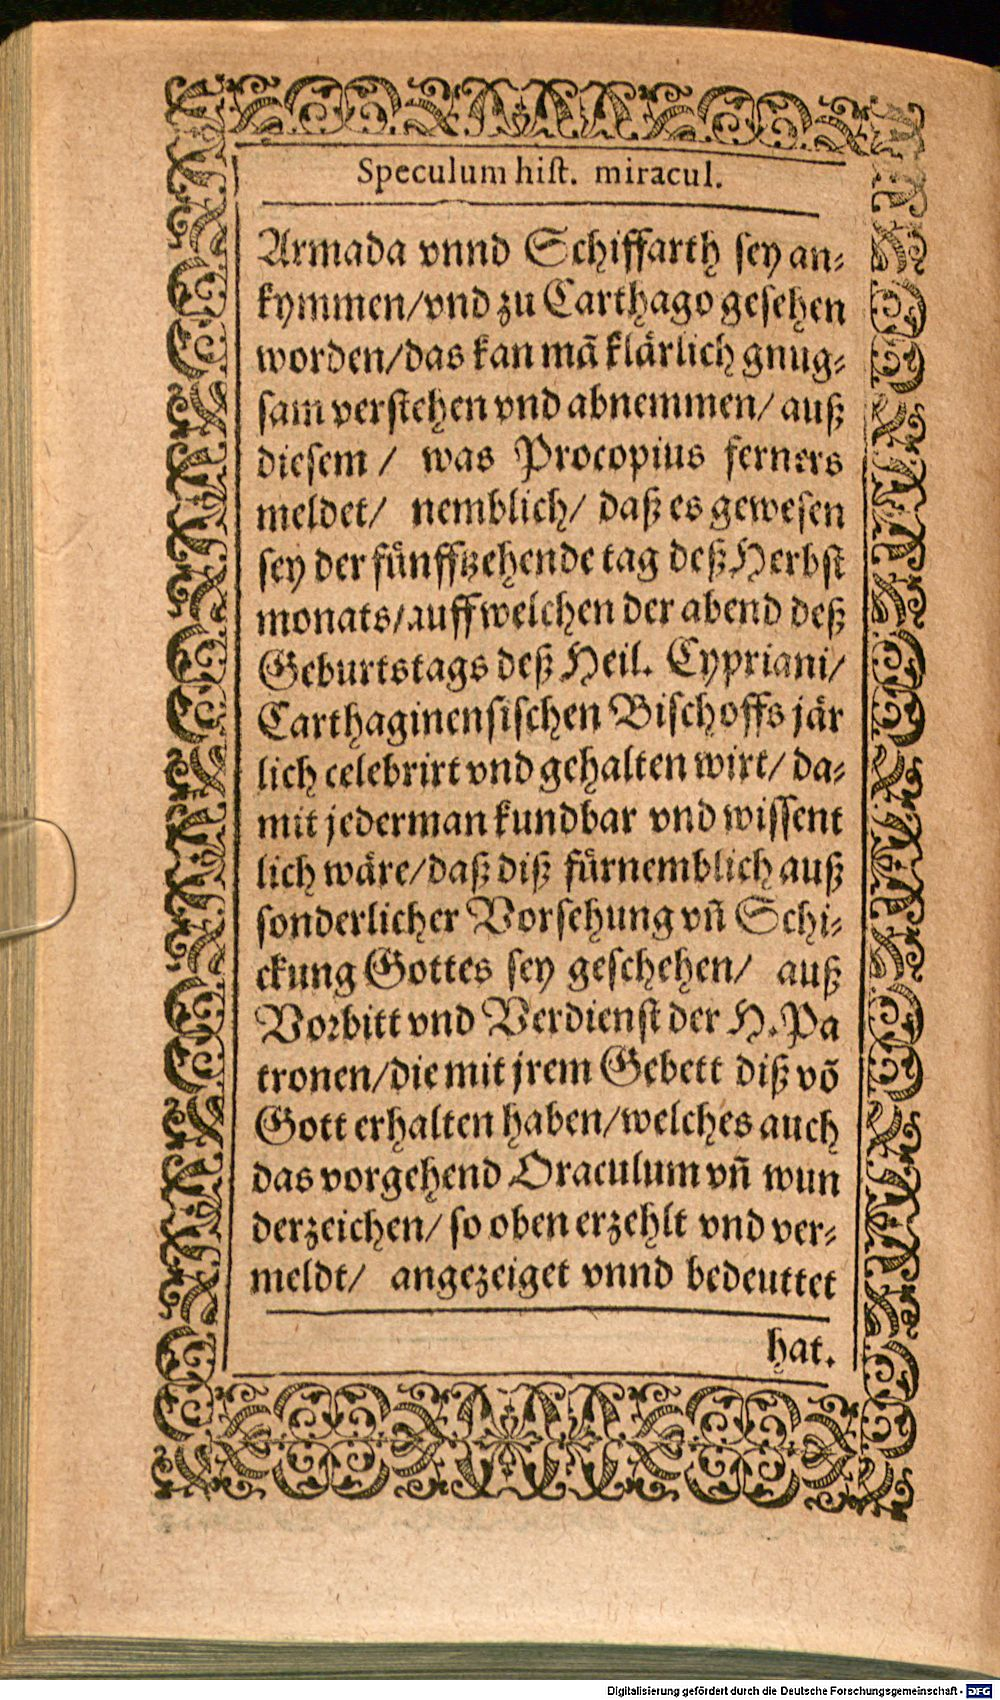 Speculum hist. miracul.
Armada vnnd Schiffarth sey an⸗
kymmen/vnd zu Carthago gesehen
worden/das kan mã klärlich gnug⸗
sam verstehen vnd abnemmen/ auß
diesem / was Procopius ferners
meldet/ nemblich/ daß es gewesen
sey der fünfftzehende tag deß Herbst
monats/auff welchen der abend deß
Geburtstags deß Heil. Cypriani/
Carthaginensischen Bischoffs jär
lich celebrirt vnd gehalten wirt/ da⸗
mit jederman kundbar vnd wissent
lich wäre/daß diß fürnemblich auß
sonderlicher Vorsehung vñ Schi⸗
ckung Gottes sey geschehen/ auß
Vorbitt vnd Verdienst der H. Pa
tronen/die mit jrem Gebett diß võ
Gott erhalten haben/welches auch
das vorgehend Oraculum vñ wun
derzeichen/ so oben erzehlt vnd ver⸗
meldt/ angezeiget vnnd bedeuttet
hat.
Digitalisierung gefördert durch die Deutsche Forschungsgemeinschaft - DFG